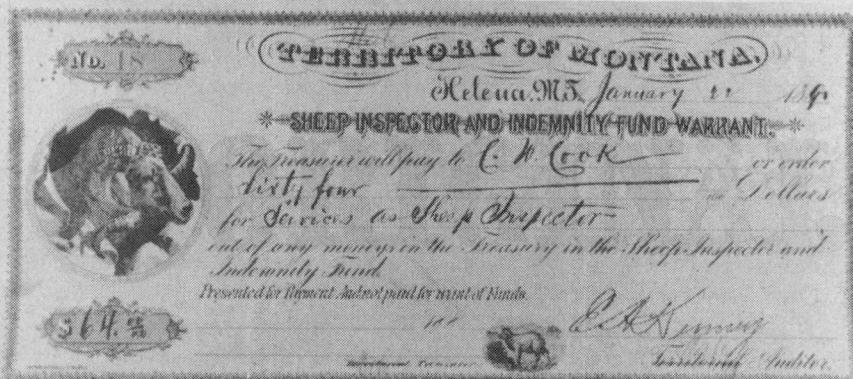 No. 18
TERRITORY OF MONTANA.
Helena, M.T. January 22 18
SHEEP INSPECTOR AND INDEMNITY FUND WARRANT.
The Treasurer will pay to C. W. Cook or order
Sixty four Dollars
for Services as Sheep Inspector
out of any moneys in the Treasury in the Sheep Inspector and
Indemnity Fund.
Presented for Payment And not paid for want of Funds.
$64.
Territorial Treasurer
Territorial Auditor.